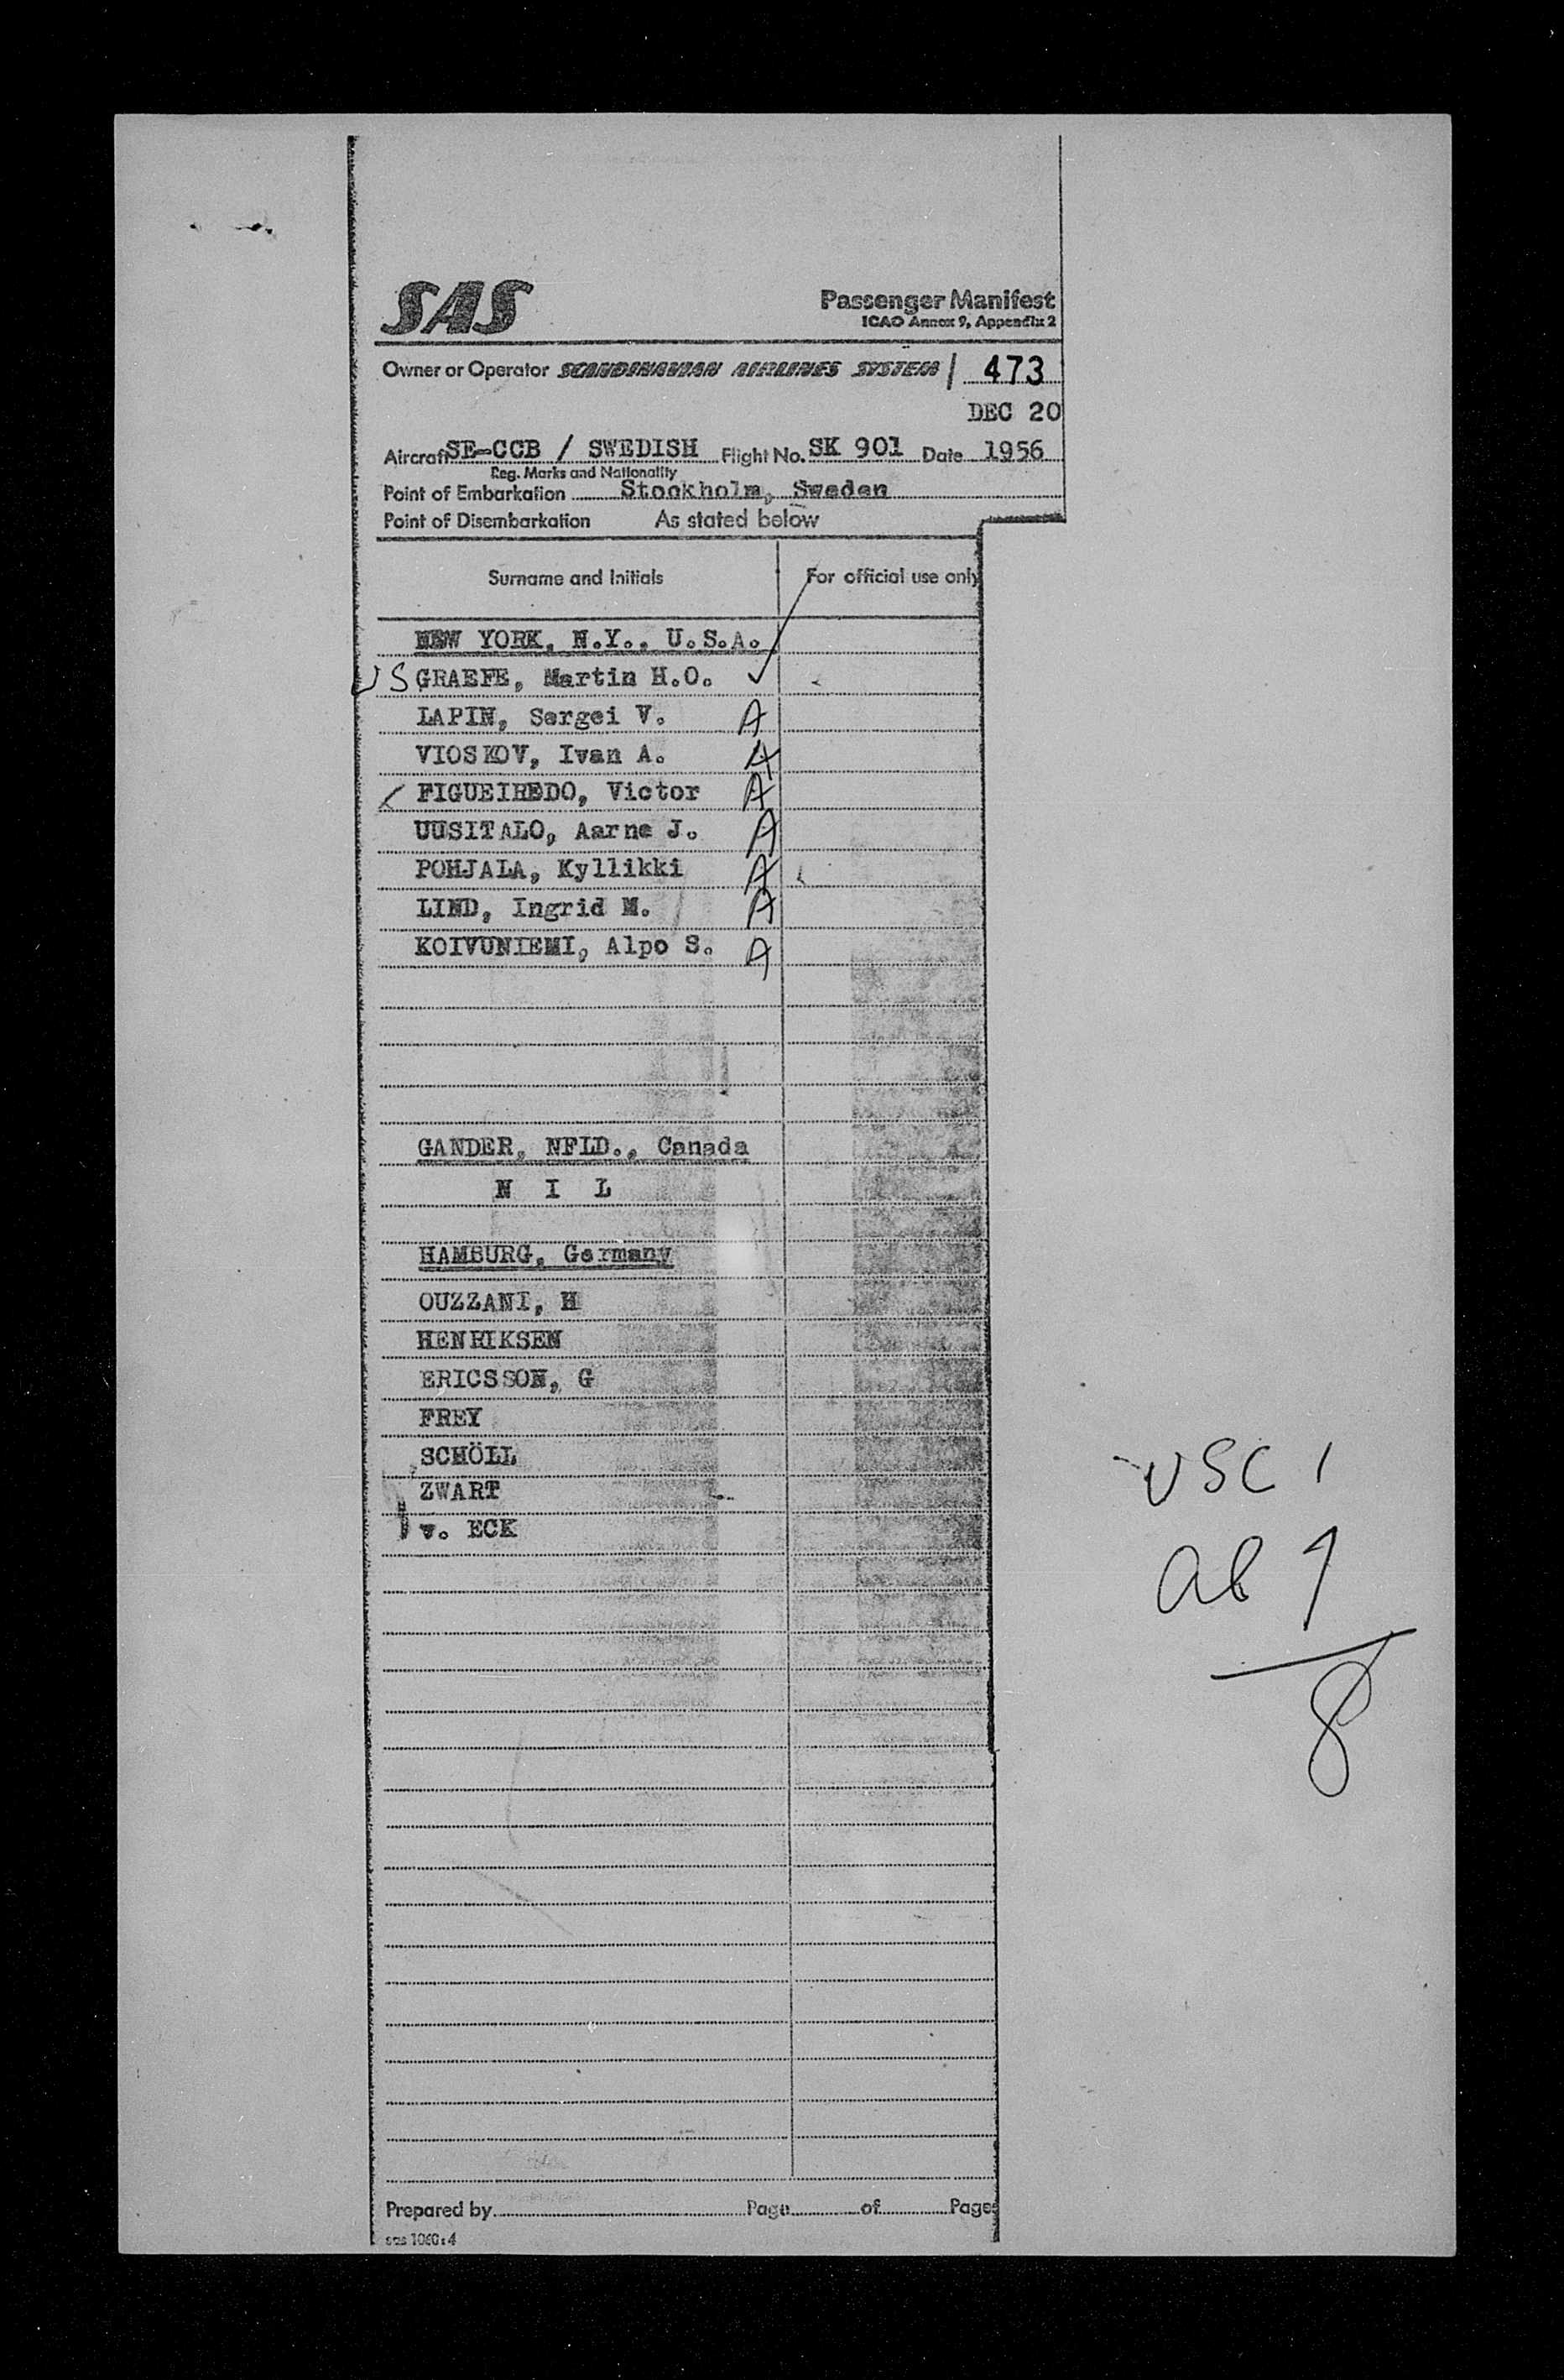 SAS
Passenger Manifest
ICAO Annex 9, Appendix 2
Owner or Operator SCANDINAVIAN AIRLINES SYSTEM / 473
DEC 20
Aircraft SE-CCB / SWEDISH Flight No. SK 901 Date 1956
Reg. Marks and Nationality
Point of Embarkation Stockholm, Sweden
Point of Disembarkation As stated below
Surname and Initials For official use only
NEW YORK, N.Y., U.S.A.
US GRAEFE, Martin H.O. ✓
LAPIN, Sergei V. A
VIOSKOV, Ivan A. A
FIGUEIREDO, Victor A
UUSITALO, Aarne J. A
POHJALA, Kyllikki A
LIND, Ingrid M. A
KOIVUNIEMI, Alpo S. A
GANDER, NFLD., Canada
N I L
HAMBURG, Germany
OUZZANI, H
HENRIKSEN
ERICSSON, G
FREY
SCHÖLL
ZWART
v. ECK
USC 1
al 7
8
Prepared by Page of Pages
sas 1060:4